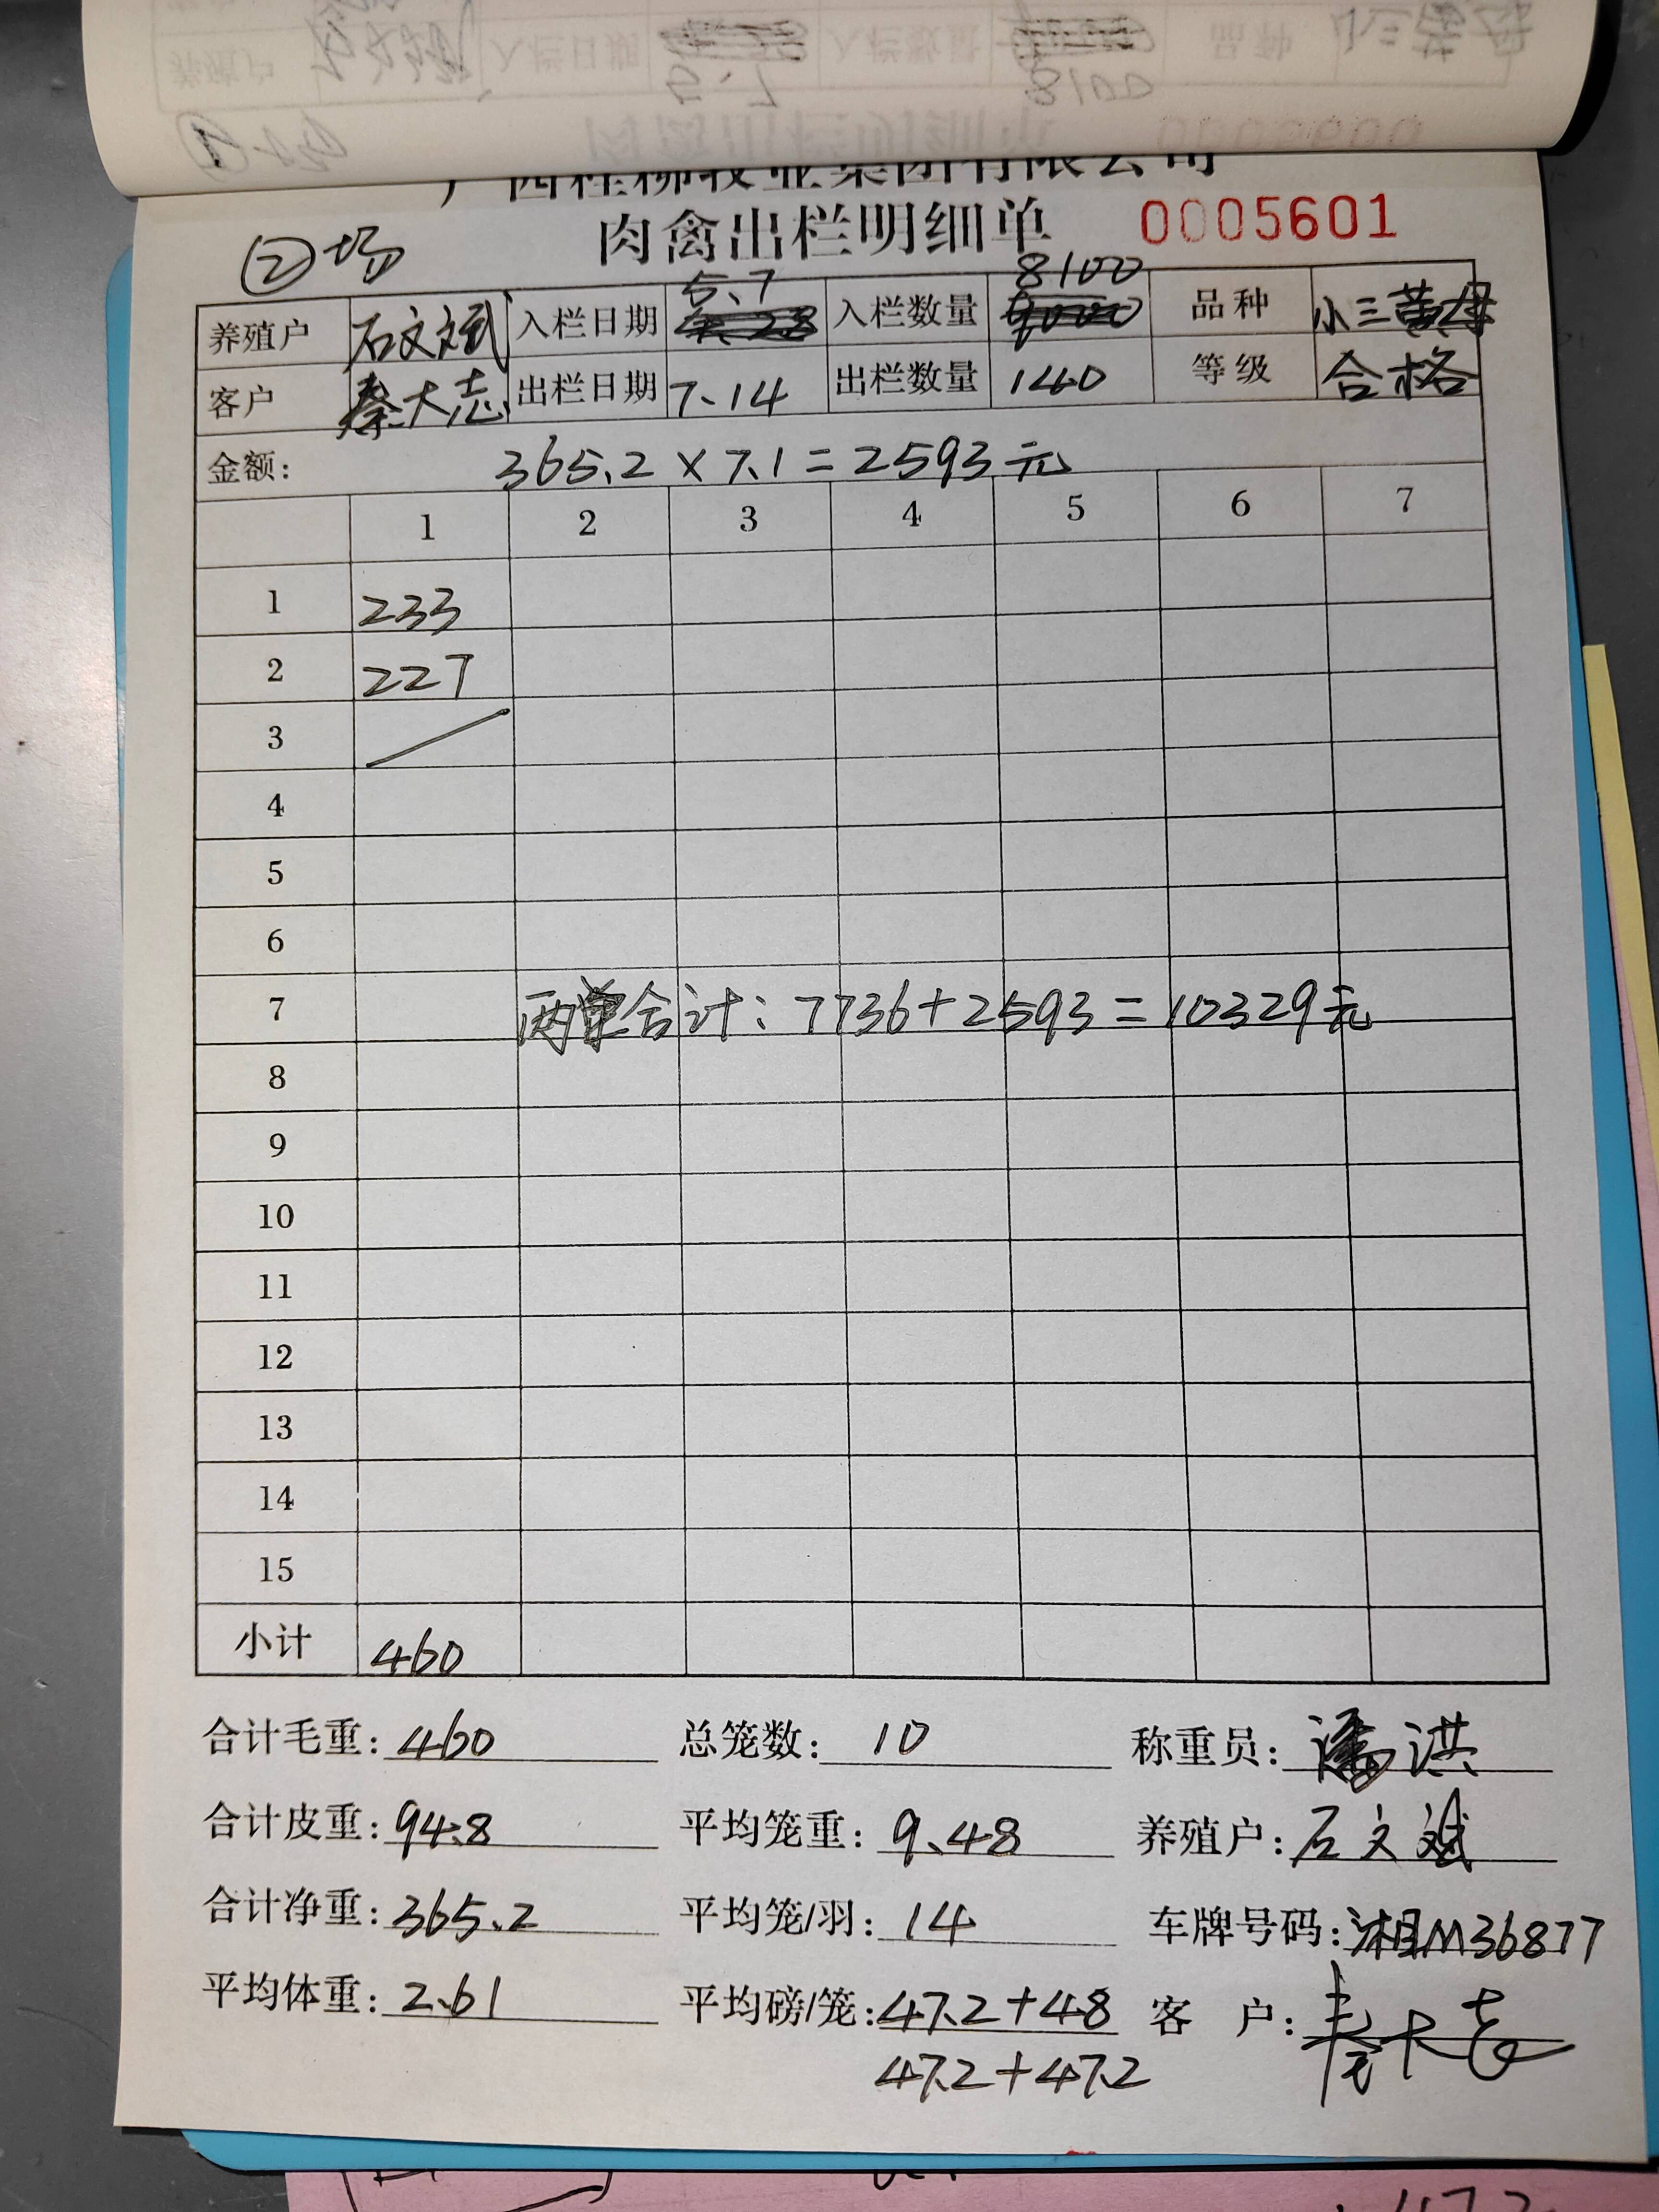 广西桂柳牧业集团有限公司
肉禽出栏明细单 0005601
②场
养殖户 石文斌 入栏日期 5、7 入栏数量 8100 品种 小三黄母
客户 秦大志 出栏日期 7、14 出栏数量 140 等级 合格
金额: 365.2×7.1=2593元
1 2 3 4 5 6 7
1 233
2 227
3
4
5
6
7 两单合计:7736+2593=10329元
8
9
10
11
12
13
14
15
小计 460
合计毛重: 460 总笼数: 10 称重员: 潘洪
合计皮重: 94.8 平均笼重: 9.48 养殖户: 石文斌
合计净重: 365.2 平均笼/羽: 14 车牌号码: 湘M36877
平均体重: 2.61 平均磅/笼: 47.2+48 客 户: 秦大志
47.2+47.2